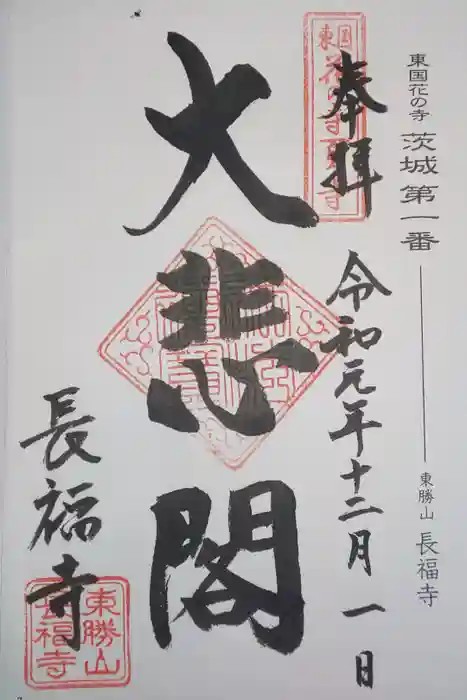 東国花の寺 茨城第一番 東勝山 長福寺
奉拝
令和元年十二月一日
大悲閣
長福寺
東国花の寺百ヶ寺
東勝山
長福寺